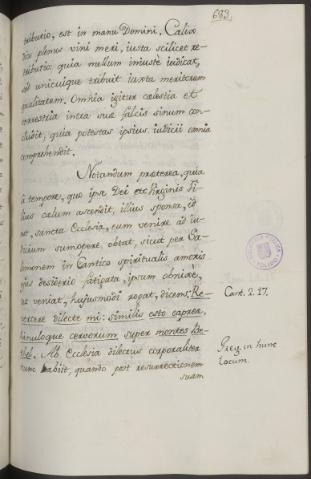 683.
tributio, est in manu Domini. Calix
vini meri, iusta scilicet re-
tributio, quia nullum iniustè iudicat,
sed unicuique tribuit iuxta meritorum
qualitatem. Omnia igitur cælestia et
terrestria intra suæ falcis sinum con-
cludit, quia potestas ipsius iudicii omnia
comprehendit.
Notandum præterea, quia
à tempore, quo ipse Dei et Virginis Fi-
lius cælum ascendit, illius sponsa, id
est, sancta Ecclesia, eum venire ad iu-
dicium summopere, obtat, sicut per Sa-
lomonem in Cantico spiritualis amoris
desiderio fatigata, ipsum
ut veniat, hujusmodi rogat, dicens: Re-
vertere dilecte mi: similis esto capreæ,
hinuloque cervorum super montes Be-
thel. Ab Ecclesia dilectus corporaliter
tunc abiit, quando post resurrectionem
suam
Cant. 2. 17.
Greg. in hunc
locum.